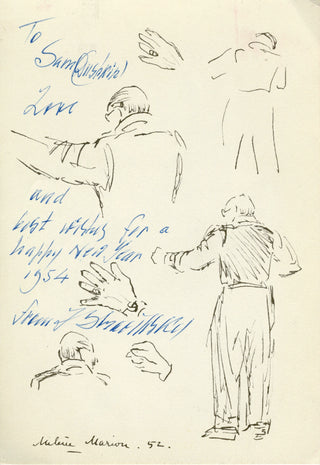 To
Sam (Dushkin)
Love
and
best wishes for a
happy New Year
1954
from I Stravinsky
Milein Marion. 52.